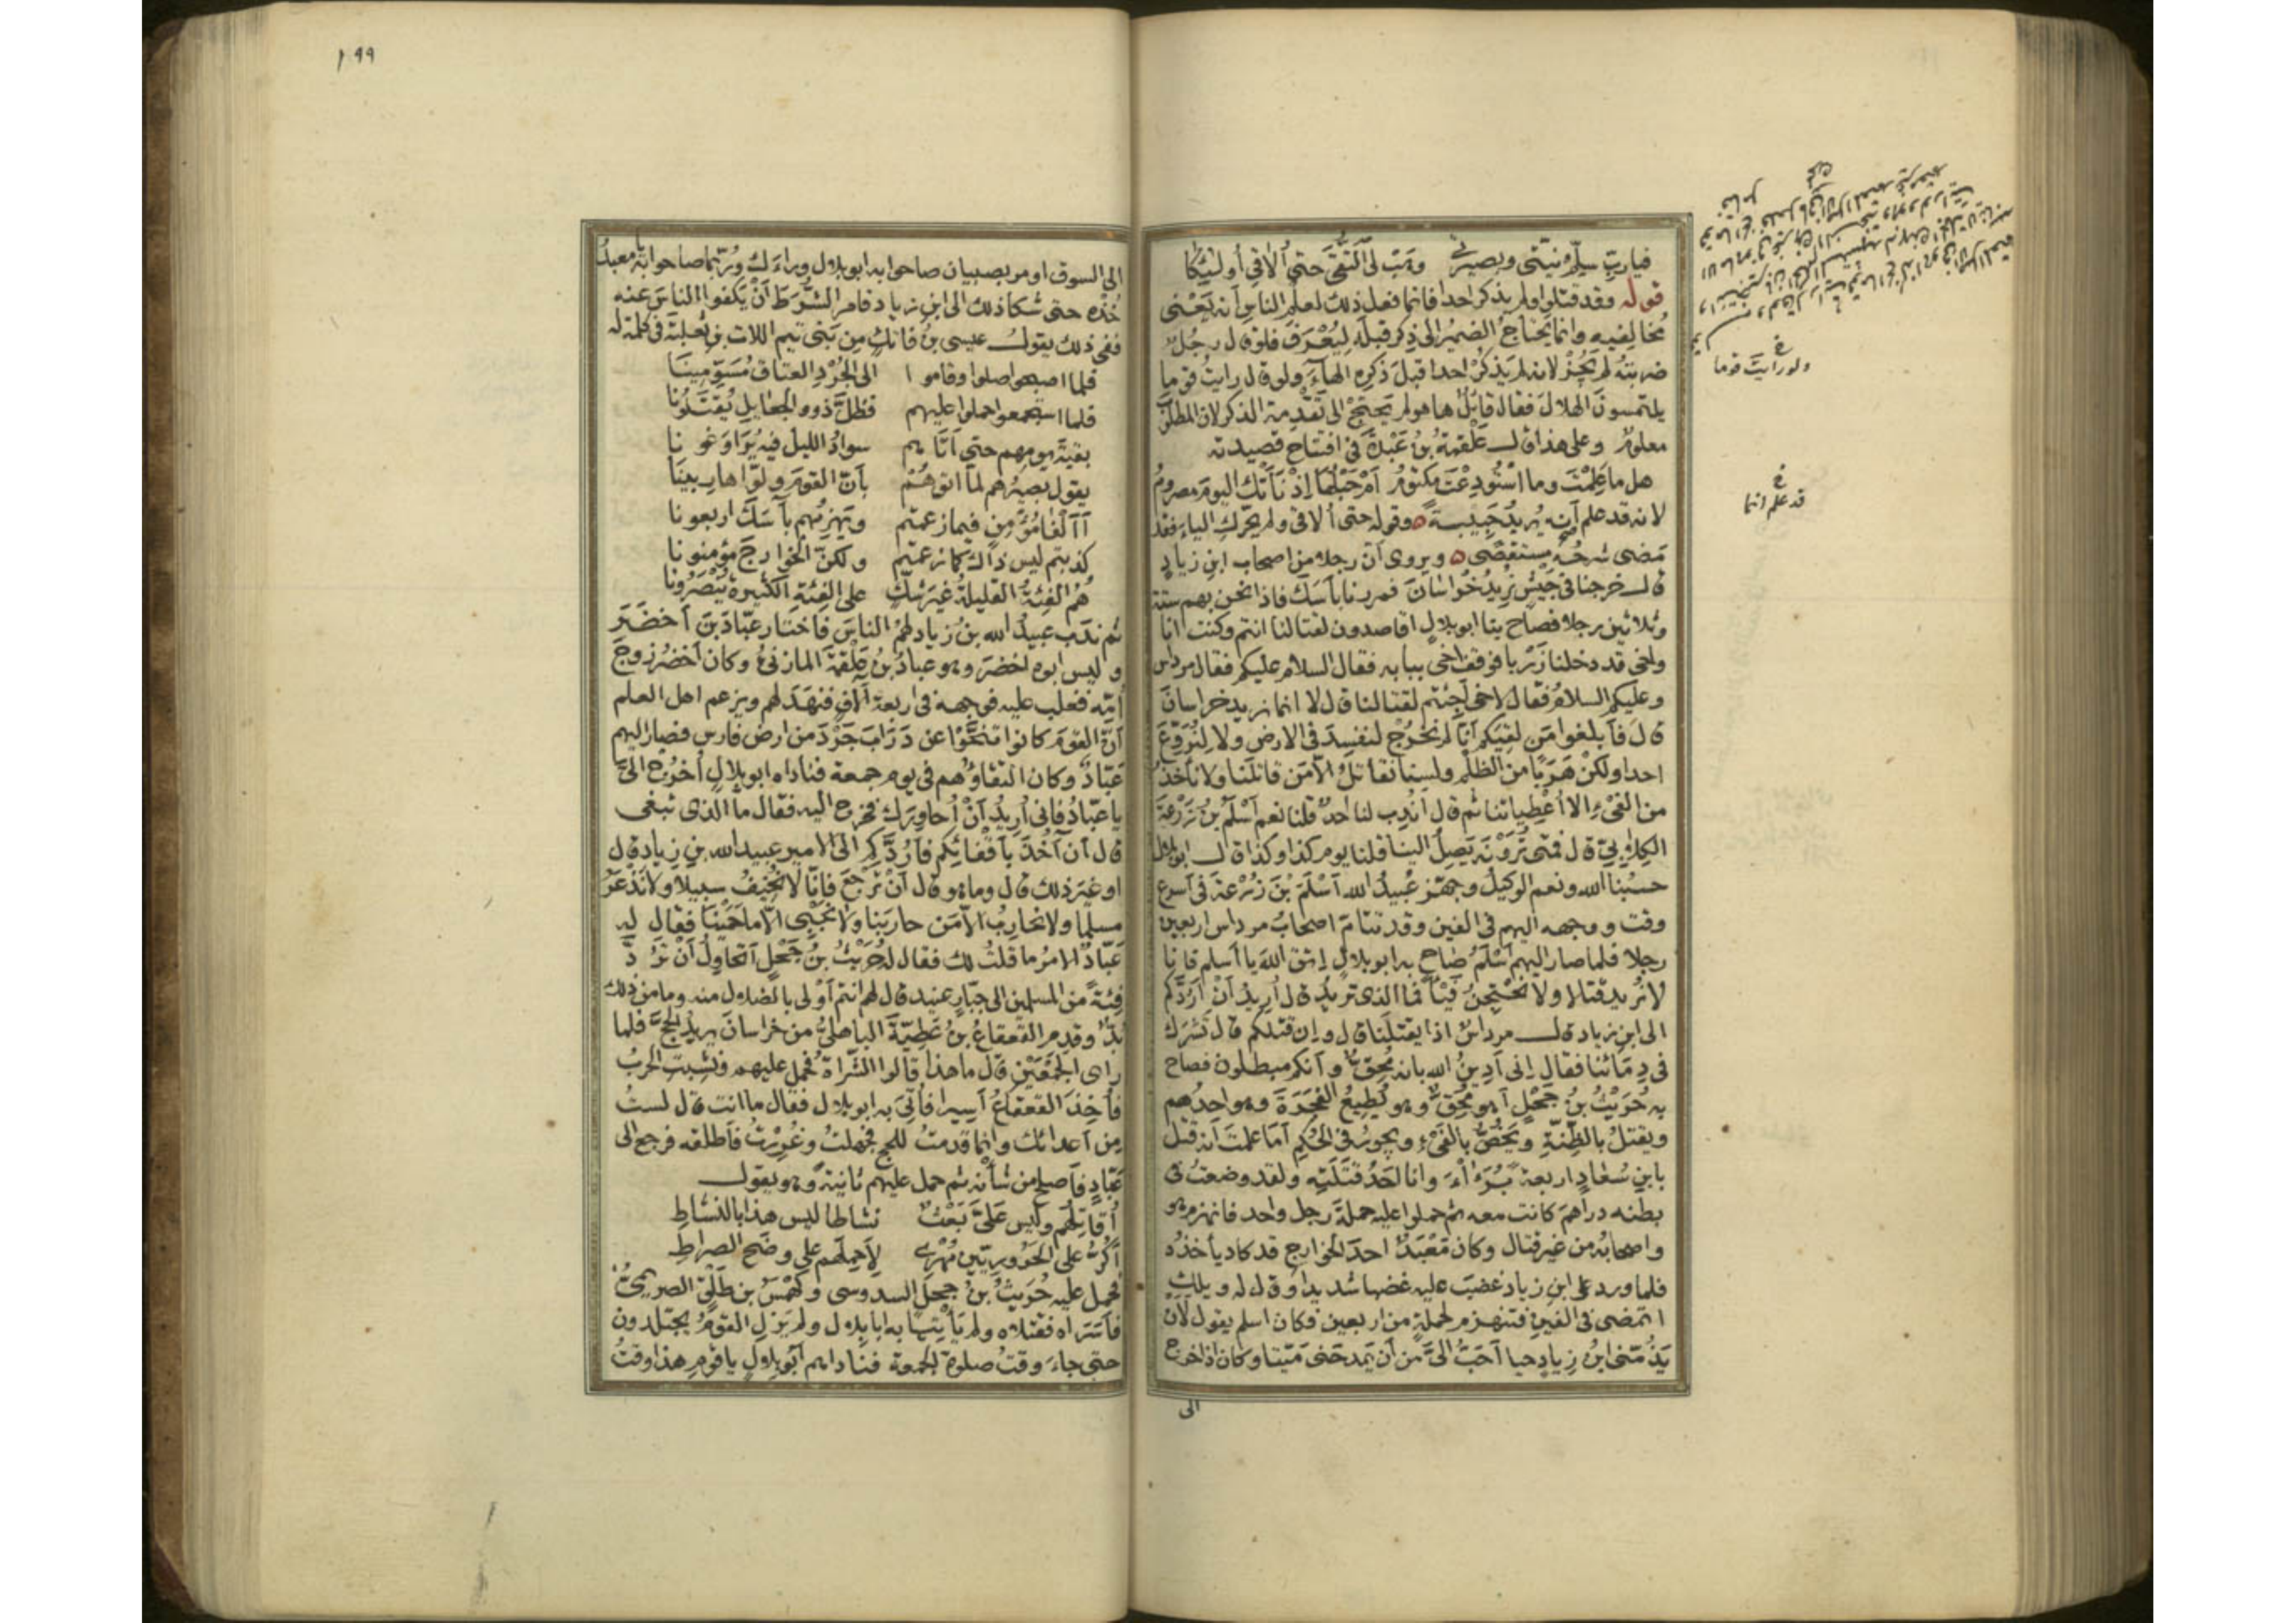 فيارب سلّم نيّتي وبصيرتي وهَبْ لي التُّقَى حتى أُلاقي أولئكا
قوله وقد قتلوا ولم يذكر احدا فانما فعل ذلك لعلم الناس أنه يَعْني
مُخالفيه وانما يَحتاجُ الضميرُ الى ذِكر قبله لِيُعْرَفَ فلو قال رجلٌ
ضربتهُ لم يَجُزْ لانه لم يَذكُرْ احدا قبل ذكره الهاءَ ولو قال رايتُ قوما
يلتمسونَ الهلالَ فقال قائلٌ ها هو لم يَحتَجْ الى تَقْدِمة الذكر لان المطلَبَ
معلومٌ وعلى هذا قال عَلْقمةُ بنُ عَبْدَةَ في افتتاح قصيدته
هل ما عَلِمْتَ وما اسْتُودِعْتَ مكتومُ أمْ حَبْلُها إذْ نَأَتْكَ اليومَ مصرومُ
لانه قد علم أنه يُريدُ حَبيبةً وقوله حتى أُلاقي ولم يحرّك الياءَ فقد
مَضى شرحُه مستقصًى ويروى أنّ رجلا من اصحاب ابنِ زيادٍ
قال خرجنا في جَيْشٍ نُرِيدُ خُراسَانَ فمررنا بآسَكَ فاذا نحن بهم ستة
وثلاثين رجلا فصاح بنا ابو بلالٍ اقاصدون لقتالنا انتم وكنت انا
واخى قد دخلنا زَرْبا فوقف أخى ببابه فقال السلام عليكم فقال مرداس
وعليكم السلامُ فقال لاخى أجئتم لقتالنا قال لا انما نريد خراسانَ
قالَ فأبلغوا مَن لقيَكم أنّا لم نَخْرُجْ لنفسِدَ في الارض ولا لِنُرَوِّعَ
احدا ولكنْ هَرَبًا من الظلم ولسنا نقاتلُ الا مَن قاتلنا ولا نأخذُ
من الفَىْءِ الا أعْطِياتنا ثم قال أنُدِب لنا احدٌ قلنا نعم أسْلَمُ بنُ زُرْعةَ
الكِلابيّ قال فمتى تُرَوْنَه يَصِلُ الينا قلنا يوم كذا وكذا قال ابو بلال
حسبُنا الله ونعم الوكيلُ وجهّز عُبيدُ الله أسْلَمَ بْنَ زُرْعةَ في أسرع
وقت ووجهه اليهم في الفين وقد تتامّ اصحابُ مرداس اربعين
رجلا فلما صار اليهم أسْلَمُ صاح به ابو بلالٍ إتق اللهَ يا أسلم فانا
لا نُريد قتالا ولا نحْتجِنُ فَيْئًا فما الذى تريدُ قال أريدُ أنْ أرُدَّكم
الى ابنِ زياد قال مرداسٌ اذا يقتلَنا قال وإن قتلكم قال تَشْرَك
في دِمَائنا فقال إنى أدِينُ الله بانه مُحِقٌّ وأنكم مبطلون فصاح
به حُرَيْثُ بنُ حَجْلٍ أهو مُحِقٌّ وهو يُطيعُ الفَجَرَةَ وهو احدُهم
ويقتلُ بالظِنّةِ ويَخُصُّ بالفَىْءِ ويجورُ في الحُكمِ أمَا علمتَ أنه قتل
بابنِ سُعادٍ اربعةً بُرَءَاءَ وانا احَدُ قَتَلَتِه ولقد وضعتُ في
بطنه دراهمَ كانت معه ثم حملوا عليه حملةَ رجل واحد فانهزم هو
واصحابُه من غير قتال وكان مَعْبَدٌ احدَ الخوارج قد كاد يأخذُه
فلما ورد على ابنِ زياد غضبَ عليه غضبا شديدا وقال له ويلك
اتمضى في الفينِ فتنهزم لحملةٍ من اربعين فكان اسلم يقول لأن
يَذُمّنى ابنُ زيادٍ حيا أحَبُّ الىَّ من أن يَمدحَنى مَيّتا وكان اذا خرج
الى
ولو رايتَ قوما
قد علم انما
١٩٩
الى السوق او مر بصبيان صاحوا به ابو بلال وراءَك ورُبّما صاحوا به يا معبدُ
خُذْه حتى شكا ذلك الى ابنِ زياد فامر الشُّرَطَ أنْ يَكفوا الناسَ عنه
ففى ذلك يقول عيسى بنُ فاتكٍ مِن بَنى تيم اللات بن ثعلبة في كلمة له
فلما اصبحوا صلوا وقاموا الى الجُرْدِ العتاق مُسَوّمِينَا
فلما استجمعوا حملوا عليهم فظلَّ ذوو الجعايل يُقتَلونا
بقيةَ يومهم حتى أتَاهم سوادُ الليل فيه يُرَاوَغونا
يقول بصيرُهم لما اتوهُمْ بأنّ القومَ ولّوا هاربينَا
أألْفَا مُؤمنٍ فيما زعمتم ويَهزمُهم بآسَكَ اربعونا
كذبتم ليس ذاك كما زعمتم ولكنّ الخوارجَ مؤمنونا
هُمُ الفِئةُ القليلةُ غيرَ شكٍّ على الفِئةِ الكثيرة يُنْصَرُونا
ثم ندَب عبيدُ الله بنُ زياد لهمُ الناسَ فاختار عبّادَ بنَ أخضَرَ
وليس ابوه اخضرَ وهو عبادُ بنُ علقمةَ المازنىُّ وكان اخضرُ زوجَ
أمّه فغلب عليه فوجهه في اربعة آلافٍ فنَهَدَ لهم ويزعم اهل العلم
أنّ القومَ كانوا تنَحَّوْا عن دَرَابَ جَرْدَ من ارض فارس فصار اليهم
عَبّادٌ وكان التقاؤُهم في يوم جمعة فناداه ابو بلالٍ أخرُج الىّ
يا عبّادُ فانى أريدُ أنْ أحاورَك فخرج اليه فقال ما الذى تبغى
قال أن آخُذَ بأقْفائِكم فأرُدَّكم الى الامير عبيد الله بنِ زياد قال
او غيرَ ذلك قال وما هو قال أنْ تَرْجعَ فإنّا لا نُخِيفُ سبيلا ولا نَذعَرُ
مسلما ولا نحاربُ الا مَن حاربَنا ولا نَجْبِى الا ما حَمَيْنا فقال له
عَبّادٌ الامرُ ما قلتُ لك فقال له حُرَيْثُ بنُ حَجْلٍ أتحاوِلُ أنْ تَرُدَّ
فئةً من المسلمين الى جبّارٍ عنيد قال لهم انتم أوْلى بالضلال منه وما من ذلك
بُدٌّ وقدم القعقاعُ بنُ عَطِيّةَ الباهلىُّ من خراسانَ يريد الحجَّ فلما
راى الجَمْعَيْن قال ما هذا قالوا الشُّراةُ فحمل عليهم ونَشِبت الحربُ
فأخِذَ القعقاعُ أسيرا فأتىَ به ابو بلال فقال ما انت قال لستُ
مِن أعدائك وانما قدمتُ للحج فجهلتُ وغُرِرْتُ فأطلقه فرجع الى
عَبّادٍ فأصلح من شأنه ثم حمل عليهم ثانيةً وهو يقول
أُقاتِلُهم وليس علىَّ بَعْثٌ نشاطا ليس هذا بالنشاطِ
أكُرُّ على الحَرُورِيّين مُهرى لِأحمِلَهم على وضَح الصراطِ
فحمل عليه حُرَيثُ بنُ حجل السدوسى وكَهْمَسُ بن طَلْقٍ الصريمىُّ
فأسَرَاه فقتلاه ولم يَأتيا به ابا بلال ولم يَزلِ القومُ يجتلدون
حتى جاءَ وقتُ صلوة الجمعة فناداهم أبو بلالٍ يا قومِ هذا وقتُ